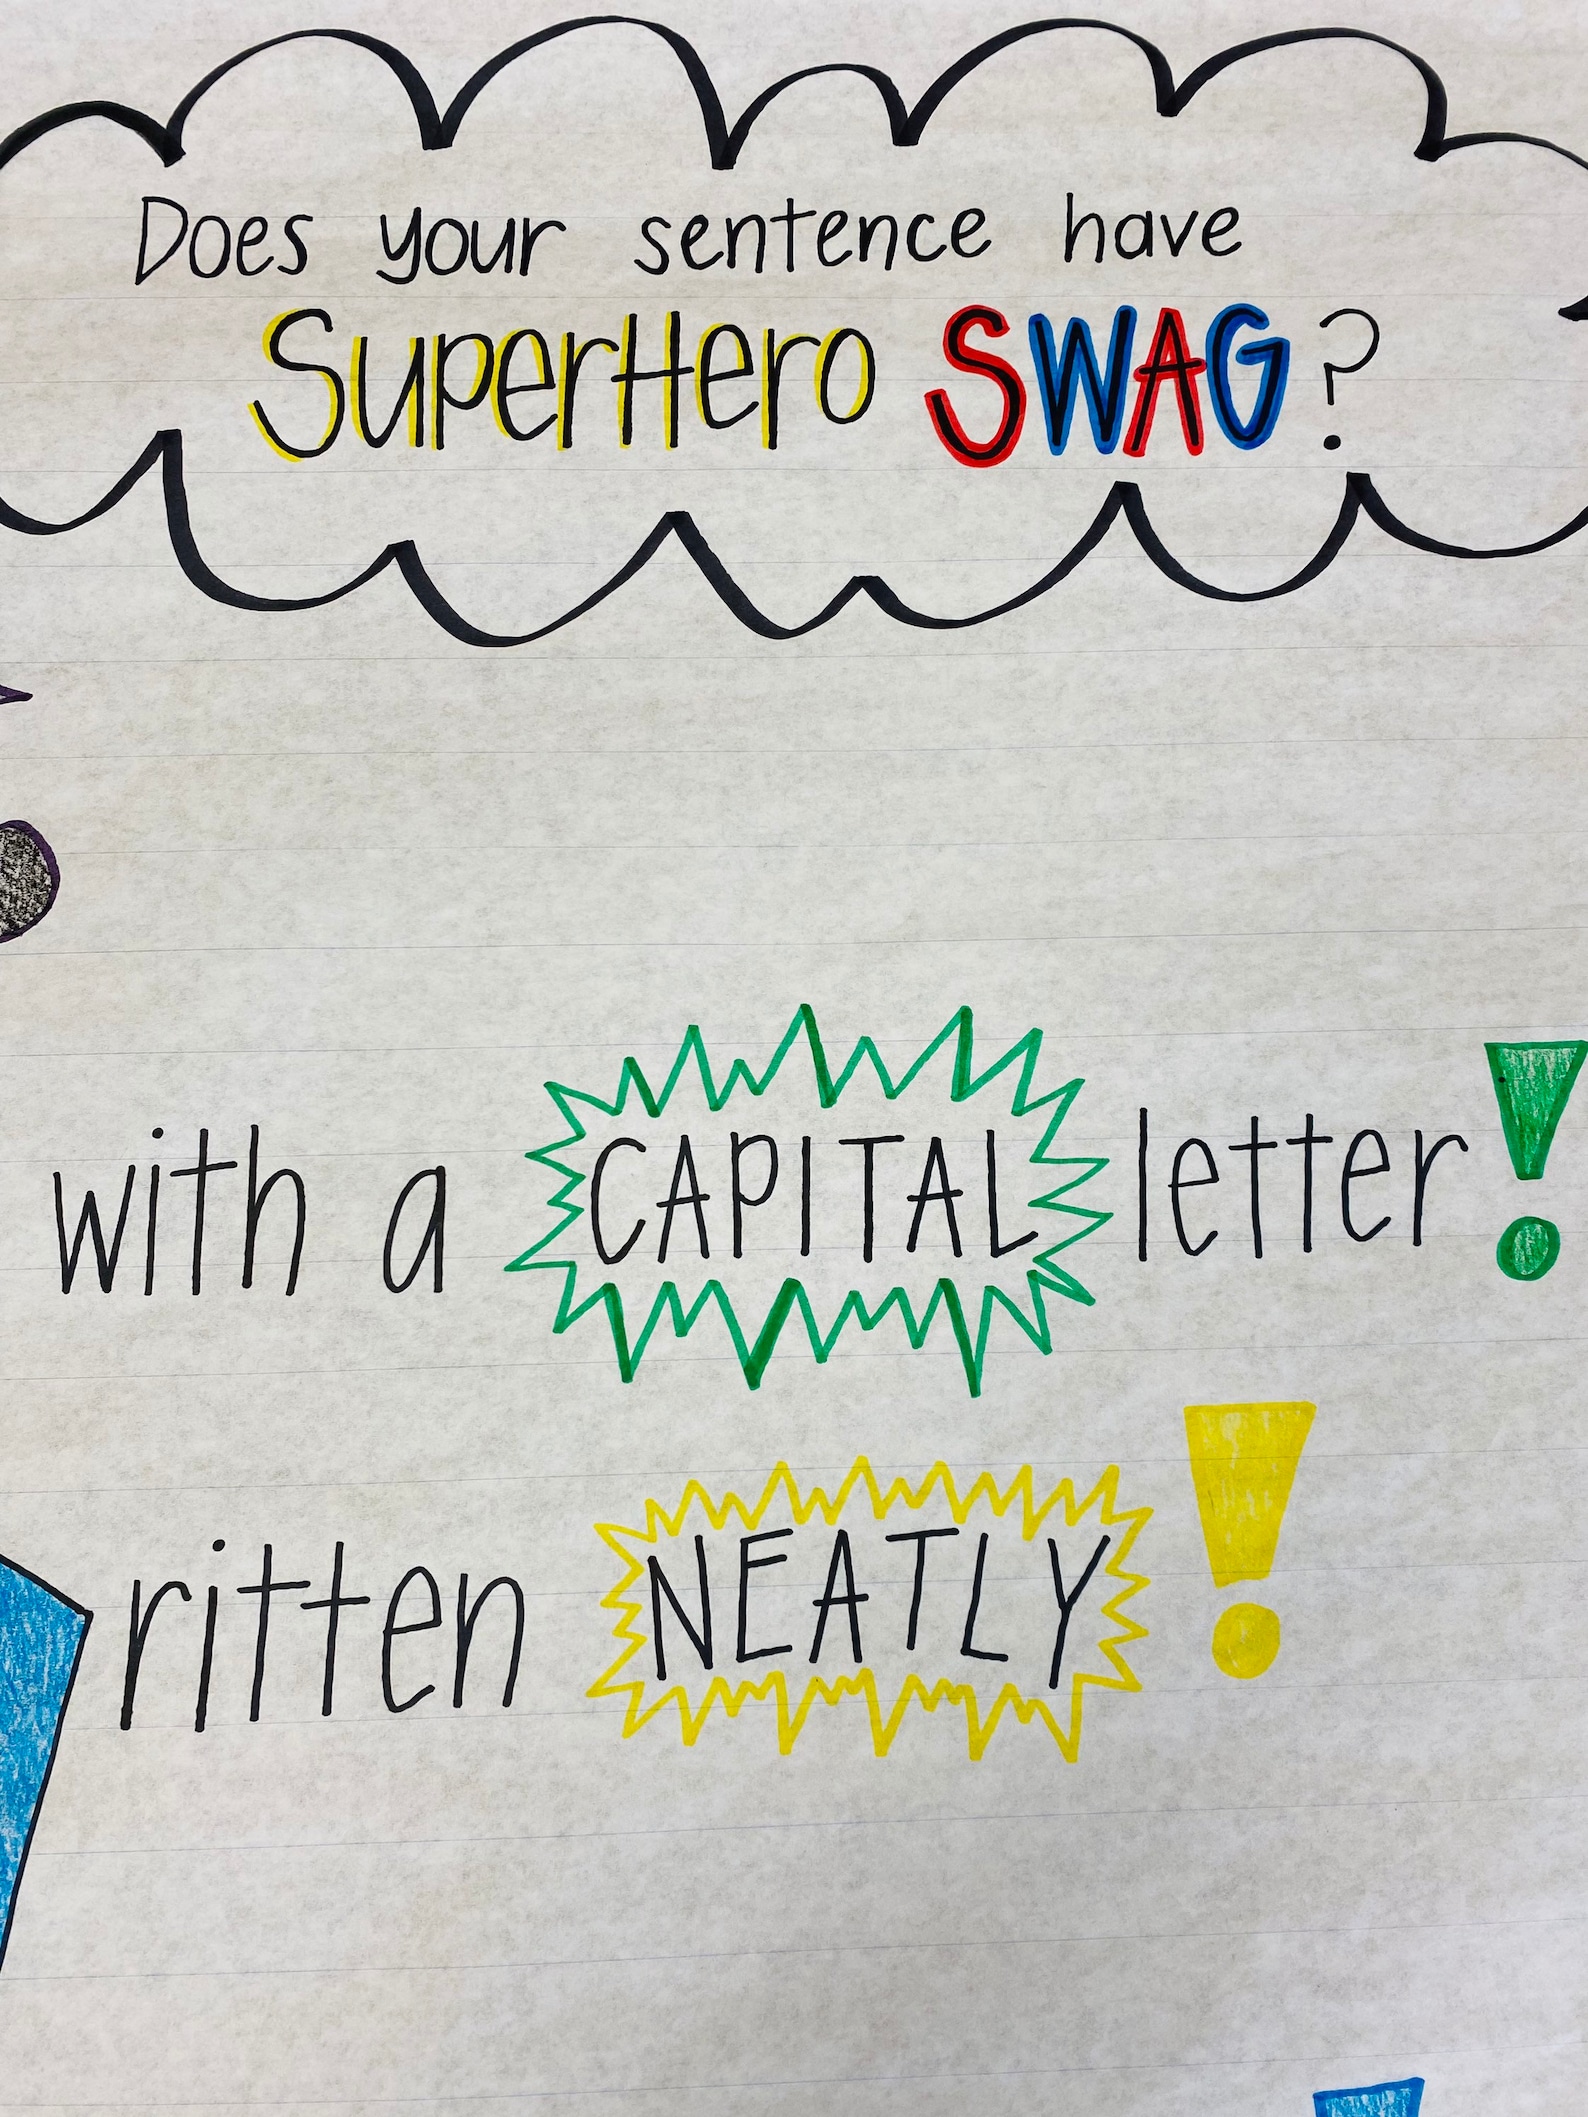 Does your sentence have
SuperHero SWAG?
with a CAPITAL letter!
ritten NEATLY!